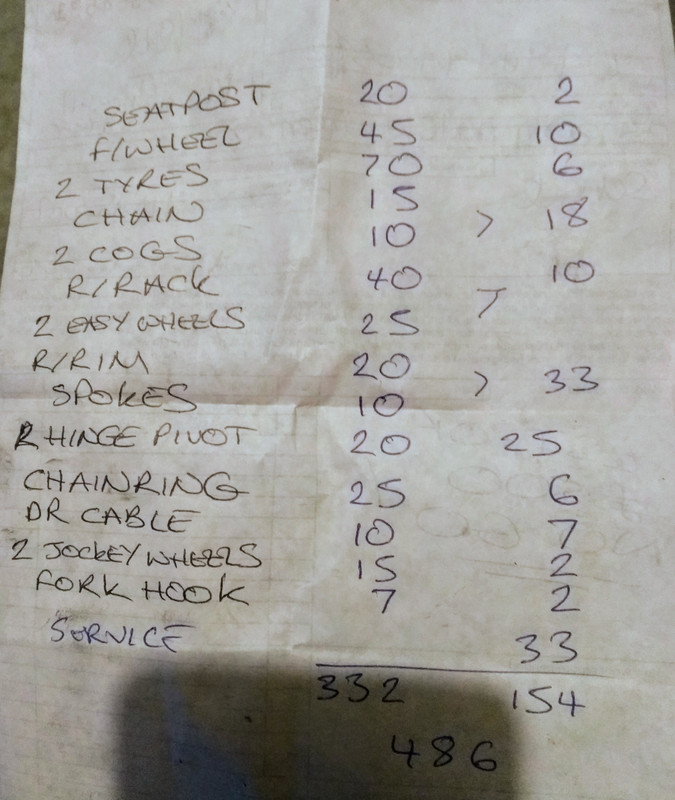 SEATPOST 20 2
F/WHEEL 45 10
2 TYRES 70 6
CHAIN 15
2 COGS 10 > 18
R/RACK 40 10
2 EASYWHEELS 25 >
R/RIM 20
SPOKES 10 > 33
R HINGE PIVOT 20 25
CHAINRING 25 6
DR CABLE 10 7
2 JOCKEY WHEELS 15 2
FORK HOOK 7 2
SERVICE 33
332 154
486